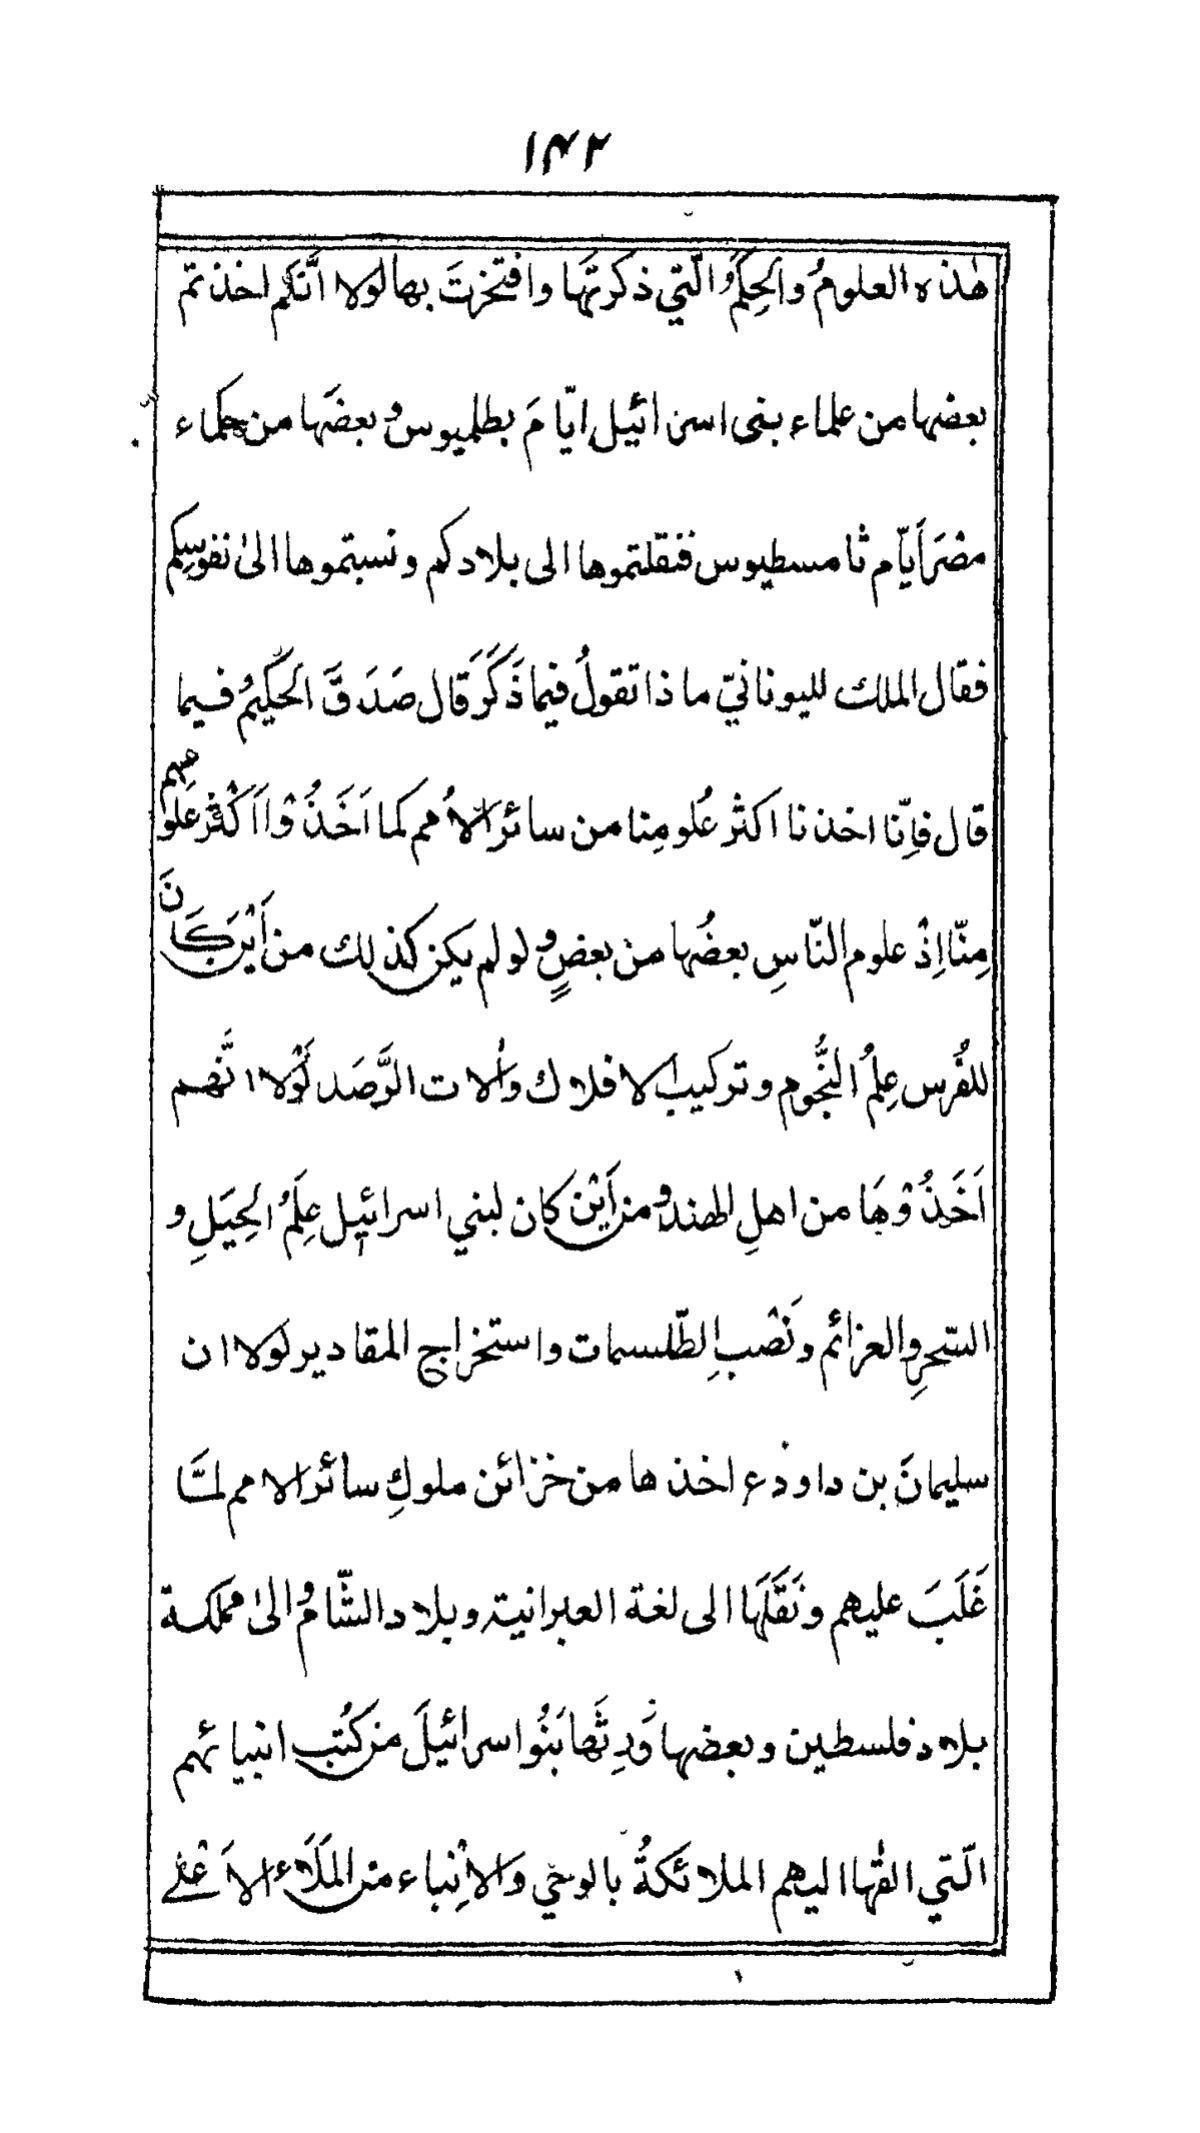 ۱۴۲
هٰذه العلومُ والحِكَمُ الّتي ذكرتَها وافتخرتَ بها لولا انَّكم اخذتم
بعضها من علماء بنى اسرائيل ايّامَ بطلميوس و بعضَها من حكماء
مصْرَ أيّام ثامسطيوس فنقلتموها الى بلادكم ونسبتموها الىٰ نفوسِكم
فقال الملك لليونانيّ ماذا تقولُ فيما ذَكَرَ قال صَدَقَ الحَكيمُ فيما
قال فإنّا اخذنا اكثر عُلومِنا من سائر الأمم كما اَخَذُوْا اَكْثَرْ عَلومِهم
مِنّا اِذْ علوم النّاسِ بعضُها منْ بعضٍ و لو لم يكن كذلك من أيْن كَانَ
للفُرس عِلمُ النُّجُوم وتركيب الافلاك وأٰلات الرَّصَد لَوْلا انَّهم
اَخَذُوْهَا من اهلِ الهند و من أيْن كان لبني اسرائيل عِلَمُ الحِيَلِ و
السّحرِ والعزائم ونَصْبِ الطّلسمات واستخراج المقادير لولا ان
سليمانَ بن داودؑ اخذها من خزائن ملوكِ سائر الامم لمَّا
غَلَبَ عليهم ونَقَلَها الى لغة العبرانية وبلاد الشّامُ و الىٰ مملكة
بلاد فلسطين وبعضها وَرِثَها بَنُو اسرائيلَ من كتُب انبيائهم
الّتي القٰها اليهم الملائكةُ بالوحْي وَالأنْباء منْ المَلَاء الاَعْلے